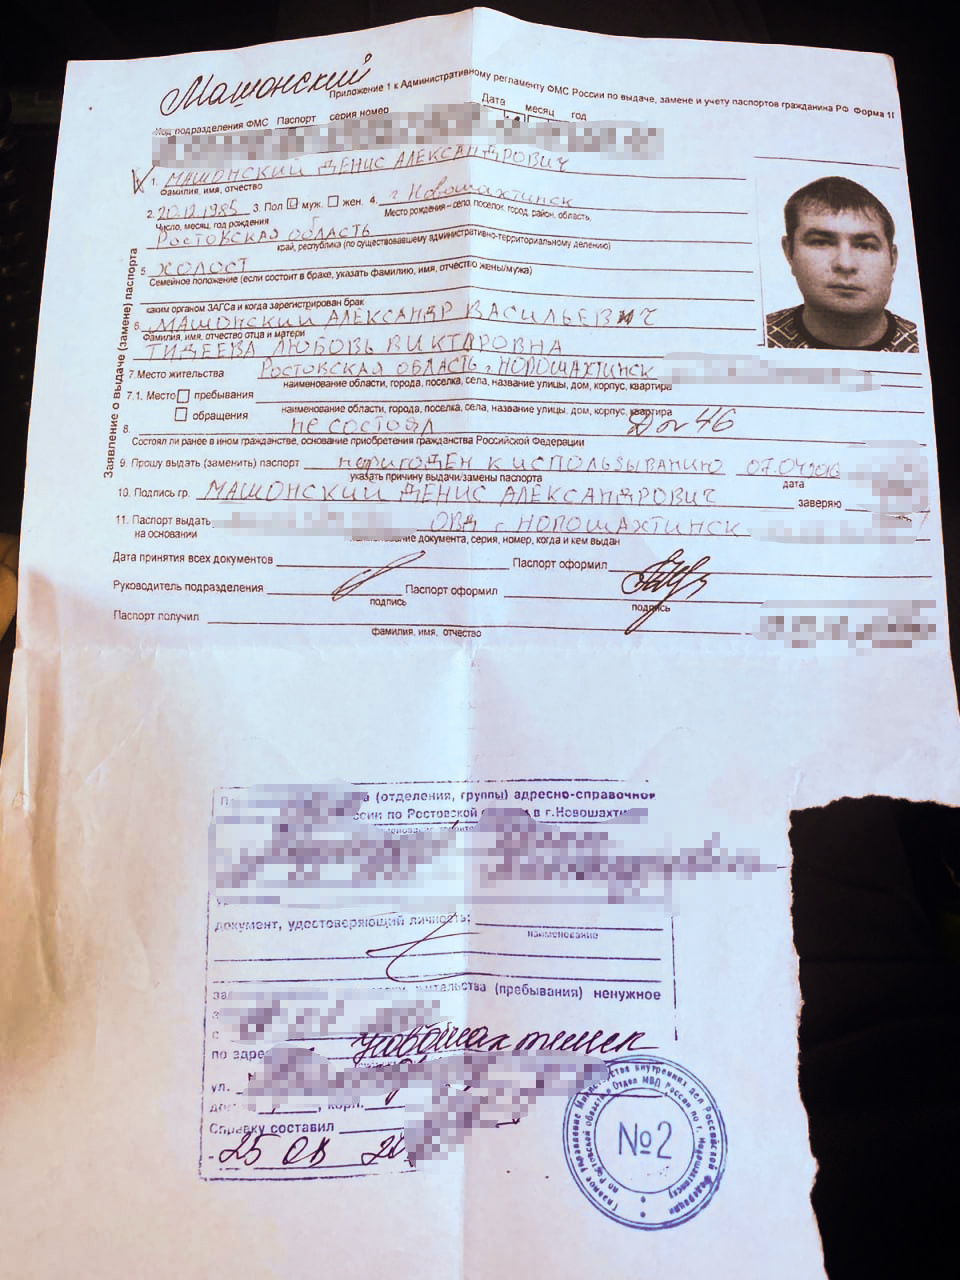 Машонский
Приложение 1 к Административному регламенту ФМС России по выдаче, замене и учету паспортов гражданина РФ Форма 1П
Код подразделения ФМС Паспорт серия номер Дата месяц год
1. МАШОНСКИЙ ДЕНИС АЛЕКСАНДРОВИЧ
Фамилия, имя, отчество
2. 20.12.1985 3. Пол муж. жен. 4. г Новошахтинск
Число, месяц, год рождения Место рождения – село, поселок, город, район, область,
Ростовская область
край, республика (по существовавшему административно-территориальному делению)
5 ХОЛОСТ
Семейное положение (если состоит в браке, указать фамилию, имя, отчество жены/мужа)
каким органом ЗАГСа и когда зарегистрирован брак
6. МАШОНСКИЙ АЛЕКСАНДР ВАСИЛЬЕВИЧ
Фамилия, имя, отчество отца и матери
ТИДЕЕВА ЛЮБОВЬ ВИКТАРОВНА
7.Место жительства РОСТОВСКАЯ ОБЛАСТЬ г. НОРОШАХТИНСК
наименование области, города, поселка, села, название улицы, дом, корпус, квартира
7.1. Место пребывания
обращения наименование области, города, поселка, села, название улицы, дом, корпус, квартира
8. не состоял 46
Состоял ли ранее в ином гражданстве, основание приобретения гражданства Российской Федерации
9. Прошу выдать (заменить) паспорт непригоден к использыванию
указать причину выдачи/замены паспорта дата
10. Подпись гр. МАШОНСКИЙ ДЕНИС АЛЕКСАНДРОВИЧ заверяю
11. Паспорт выдать ОВД г. НОРОШАХТИНСК
на основании наименование документа, серия, номер, когда и кем выдан
Дата принятия всех документов Паспорт оформил
Руководитель подразделения Паспорт оформил
подпись подпись
Паспорт получил
фамилия, имя, отчество
Заявление о выдаче (замене) паспорта
(отделения, группы) адресно-справочной
по Ростовской в г.Новошахти
документ, удостоверяющий личность:
наименование
(пребывания) ненужное
по адре Новошахтинск
ул.
, корп.
Справку составил
25 08
Главное управление Министерства внутренних дел Российской Федерации по Ростовской области
Отдел МВД России по г. Новошахтинску
№2